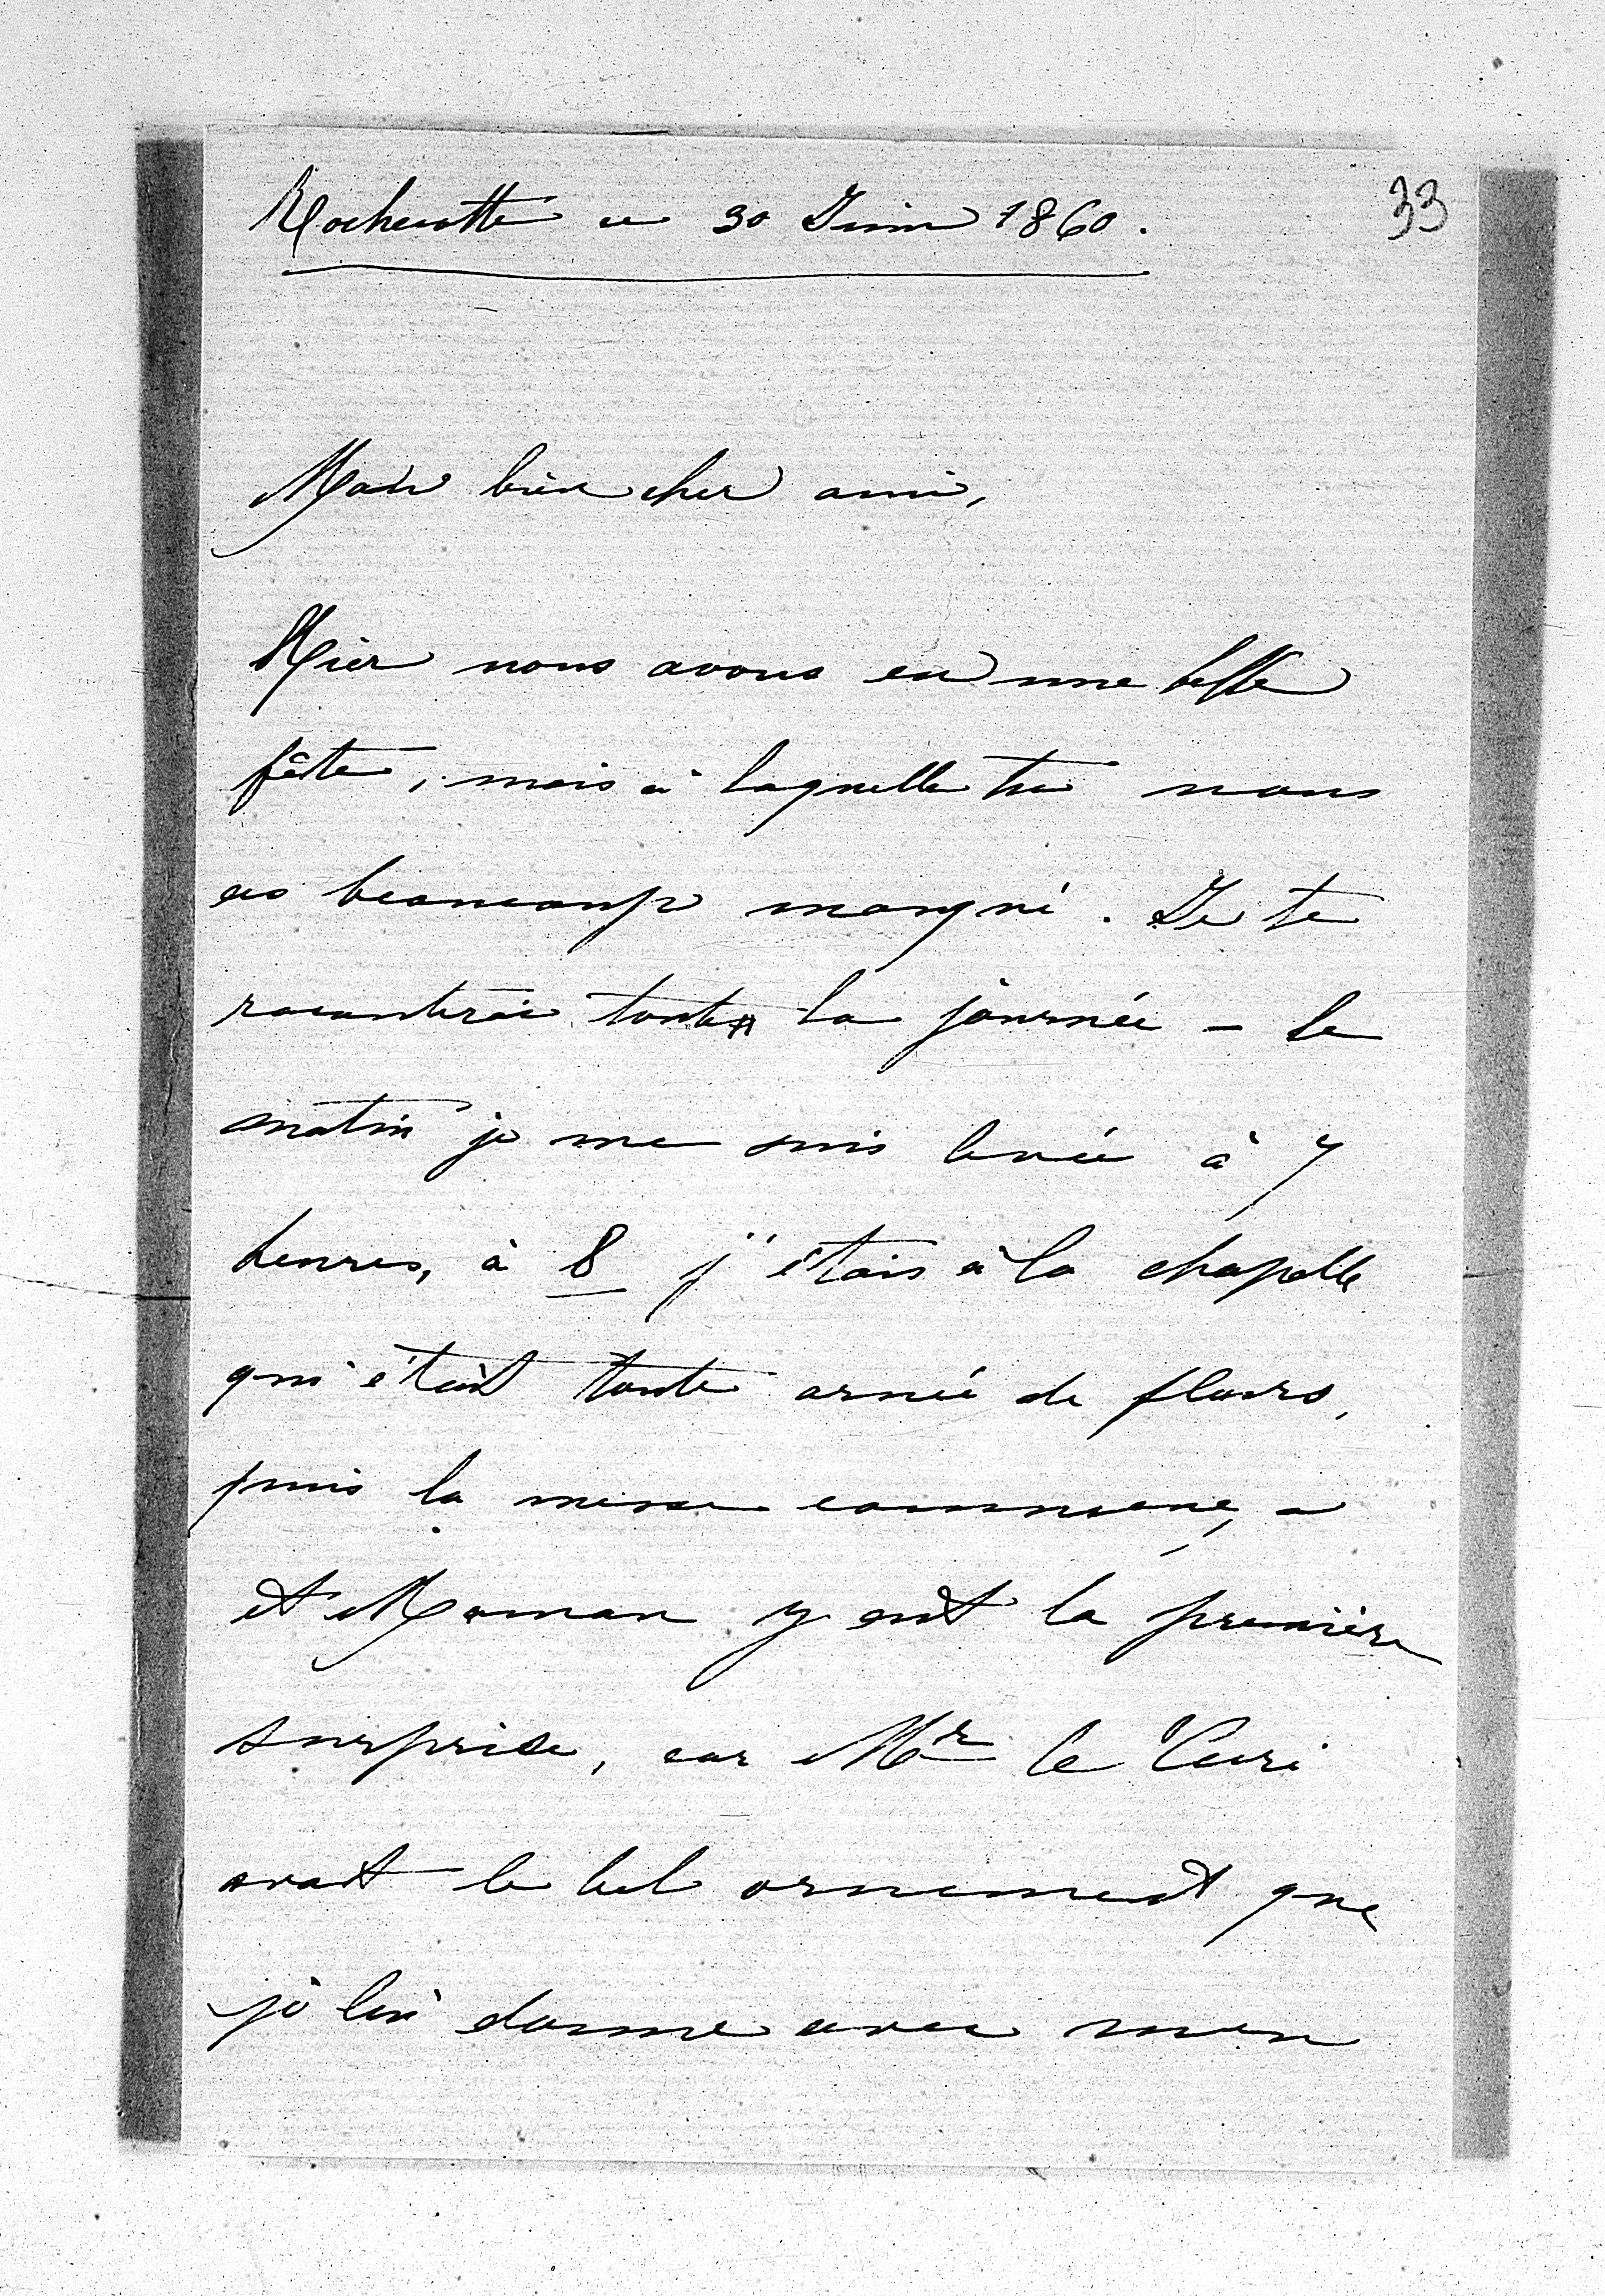 Rochecotte ce 30 Juin 1860.
33
Mon bien cher ami,
Hier nous avons eu une belle
fête, mais à laquelle tu nous
as beaucoup manqué. Je te
raconterai toute la journée – le
matin je me suis levée à 7
heures, à 8 j'étais à la chapelle
qui était toute ornée de fleurs,
puis la messe commença
et Maman y eut la première
surprise, car Mr le Curé
avait le bel ornement que
je lui donne avec mon